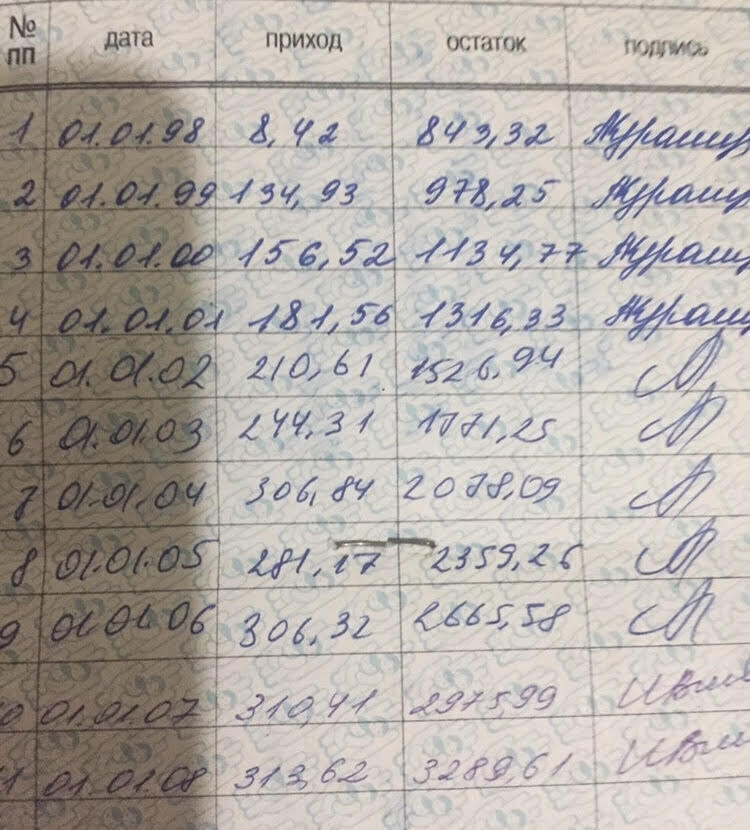 № пп дата приход остаток подпись
1 01.01.98 8,42 843,32
2 01.01.99 134,93 978,25
3 01.01.00 156,52 1134,77
4 01.01.01 181,56 1316,33
5 01.01.02 210,61 1526,94
6 01.01.03 244,31 1771,25
7 01.01.04 306,84 2078,09
8 01.01.05 281,17 2359,26
9 01.01.06 306,32 2665,58
0 01.01.07 310,41 2975,99
1 01.01.08 313,62 3289,61